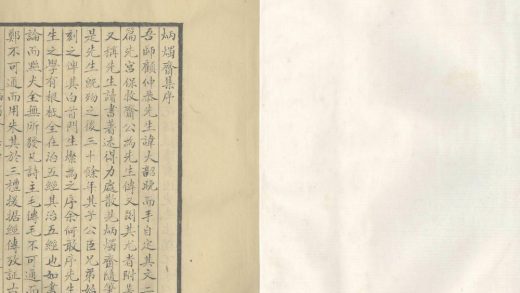 炳燭齋集序
吾師顧仲恭先生諱大韶晚而手自定其文二
篇先宮保救齋公為先生傳又别其尤者附
又稱先生讀書著述得力處散見炳燭齋隨筆
是先生既歿之後三十餘年其子公臣兄弟始
刻之俾其白首門生燦為之序余何敢序先生
生之學有根柢全在治五經其治五經也如
論而黙夫全無所發凡詩主毛傳毛不可通而
鄭不可通而用朱其於三禮援據經傳攷証